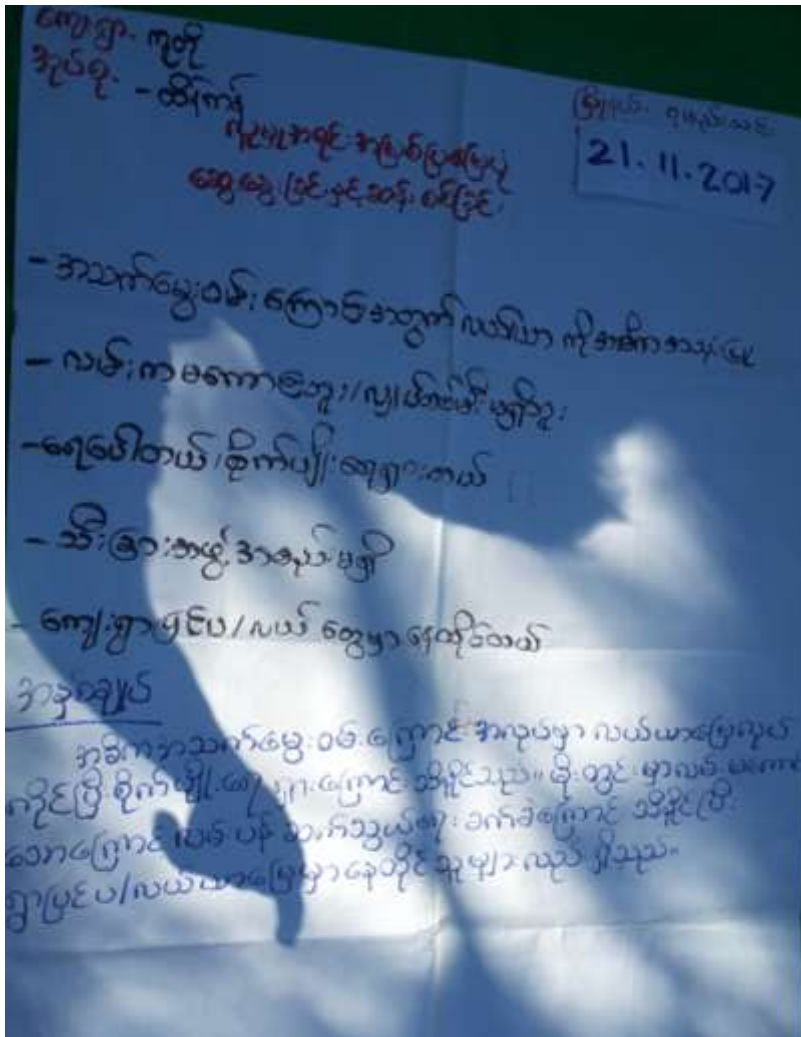 ကျေးရွာ- ကူတို
အုပ်စု. - ထိန်ကန်
မြို့နယ်- ရမည်းသင်း
21.11.2017
လူမှုအရင်းအမြစ်ပြမြေပုံ
ဆွေးနွေးခြင်းနှင့်ဆန်းစစ်ခြင်း
- အသက်မွေးဝမ်းကြောင်းအတွက် လယ်ယာ ကိုအဓိကအသုံးပြု
- လမ်းကမကောင်းဘူး/လျှပ်စစ်မီးမရှိဘူး
- ရေပေါ်တယ်/စိုက်ပျိုးရေရှားတယ်
- သီးခြားအဖွဲ့အစည်းမရှိ
- ကျေးရွာပြင်ပ/လယ်တွေမှာနေထိုင်တယ်
အနှစ်ချုပ်
အဓိကအသက်မွေးဝမ်းကြောင်းအလုပ်မှာ လယ်ယာမြေလုပ်
ကိုင်ပြီး စိုက်ပျိုးရေရှားကြောင်းသိရှိနိုင်သည်။ မိုးတွင်းမှာလမ်းမကောင်း
သောကြောင့် လမ်းပန်းဆက်သွယ်ရေးခက်ခဲကြောင်း သိရှိနိုင်ပြီး
ရွာပြင်ပ/လယ်ယာမြေမှာနေထိုင်သူများလည်း ရှိသည်။